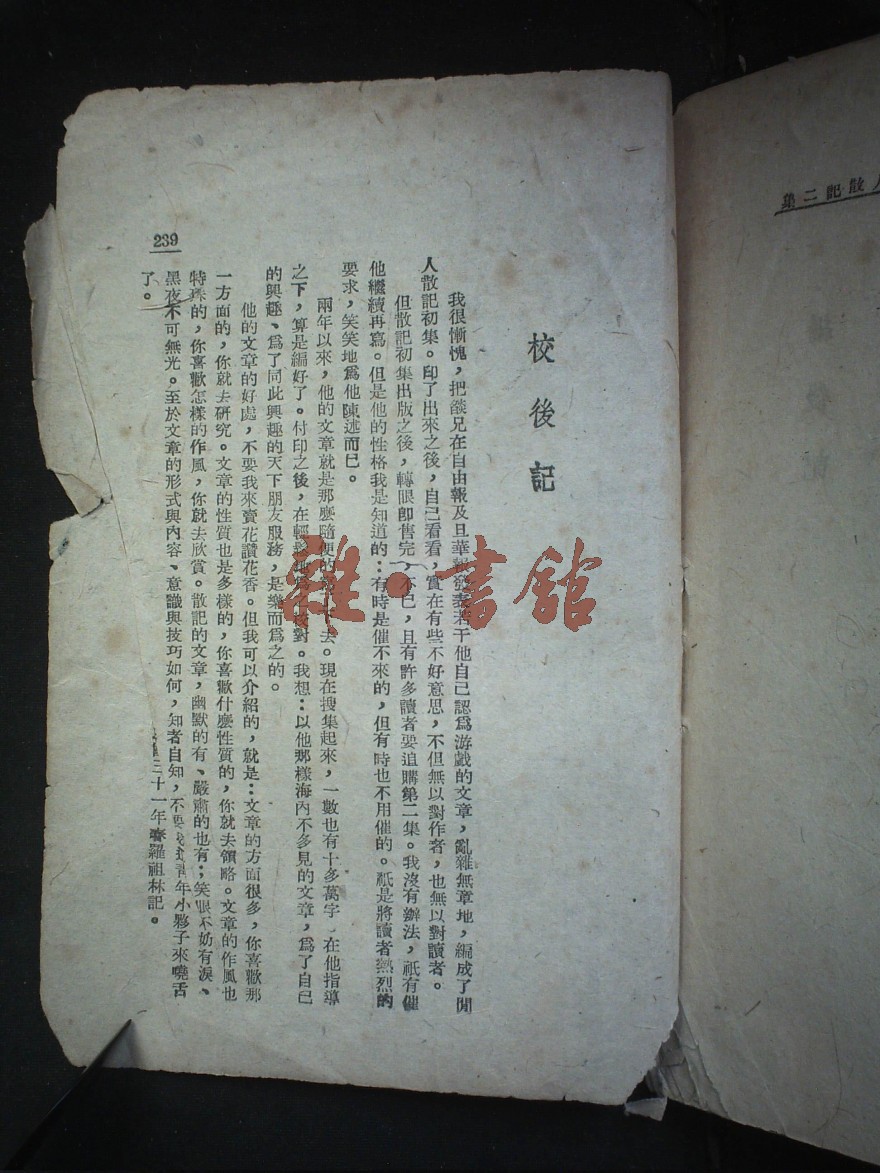 校後記
我很慚愧，把談兄在自由報及旦華報發表若干他自己認爲游戲的文章，亂雜無章地，編成了閒
人散記初集。印了出來之後，自己看看，實在有些不好意思，不但無以對作者，也無以對讀者。
但散記初集出版之後，轉眼即售完，不已，且有許多讀者要追購第二集。我沒有辦法，祇有催
他繼續再寫。但是他的性格我是知道的：有時是催不來的，但有時也不用催的。祇是將讀者熱烈的
要求，笑笑地爲他陳述而已。
兩年以來，他的文章就是那麼隨便的寫下去。現在搜集起來，一數也有十多萬字，在他指導
之下，算是編好了。付印之後，在輕鬆地爲之校對。我想：以他那樣海內不多見的文章，爲了自己
的興趣、爲了同此興趣的天下朋友服務，是樂而爲之的。
他的文章的好處，不要我來賣花讚花香。但我可以介紹的，就是：文章的方面很多，你喜歡那
一方面的，你就去研究。文章的性質也是多樣的，你喜歡什麼性質的，你就去領略。文章的作風也
特殊的，你喜歡怎樣的作風，你就去欣賞。散記的文章，幽默的有、嚴肅的也有；笑眼不妨有淚、
黑夜不可無光。至於文章的形式與內容、意識與技巧如何，知者自知，不要我這青年小夥子來嘵舌
了。
三十一年春羅祖林記。
239
人散記二集
雜·書館